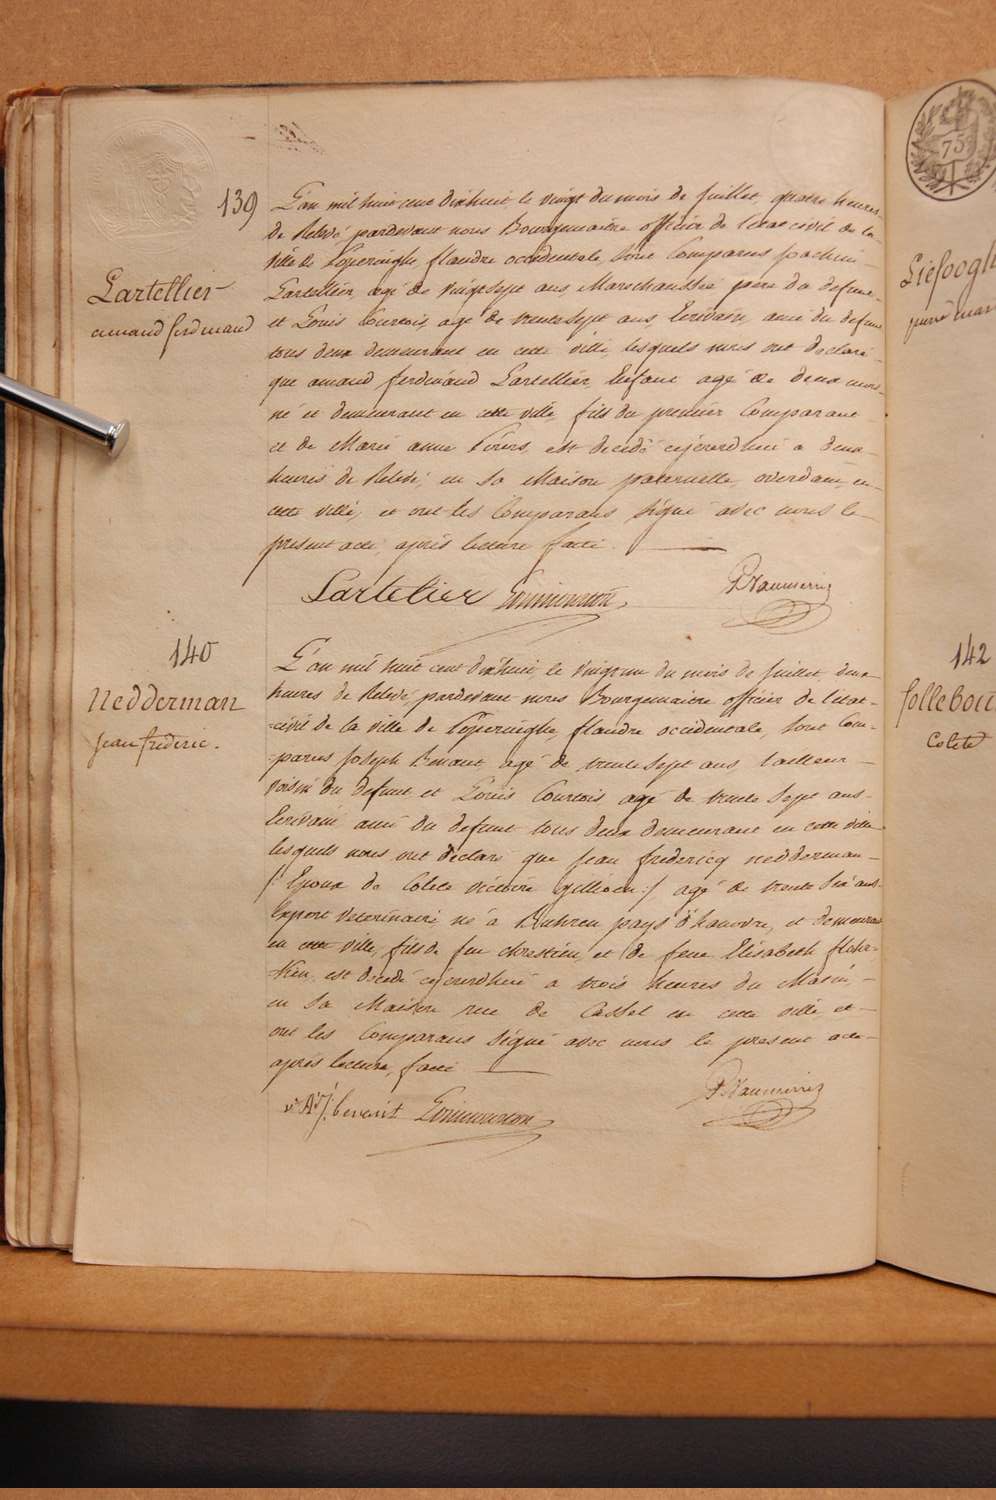 139
L'an mil huit cent dixhuit le vingt du mois de Juillet, quatre heures
de Relevé pardevant nous Bourguemaitre officier de l'etat civil de la
ville de Poperinghe, flandre occidentale, sont Comparus Joachim
Lartellier, agé de vingt sept ans Marechaussée pere du defunt
et Louis Courtois, agé de trente sept ans, Ecrivain, ami du defunt
tous deux demeurant en cette ville, lesquels nous ont declaré
que amand ferdinand Lartellier, Enfant agé de deux mois
né et demeurant en cette ville, fils du premier Comparant
et de Marie anne est decedé cejourdhui a deux
heures de Relevé, en sa Maison paternelle, overdam, en
cette ville, et ont les Comparans Signé avec nous le
present acte, après lecture faite
Lartellier
amand ferdinand
Lartelier
140
Nedderman
Jean frederic.
L'an mil huit cent dixhuit, le vingt un du mois de Juillet, deux
heures de Relevé, pardevant nous Bourguemaitre officier de l'etat
civil de la ville de Poperinghe, flandre occidentale, sont Com-
-parus Joseph Benaut agé de trente sept ans tailleur
voisin du defunt et Louis Courtois agé de trente sept ans
Ecrivain ami du defunt tous deux demeurant en cette ville
lesquels nous ont declaré que Jean fredericq nedderman
/: Epoux de Colete victoire Gillioen :/ agé de trente Six ans
Expert Veterinaire né à Buhren pays d'hanovre, et demeurant
en cette ville, fils de feu chrestien, et de feue Elisabeth
est decedé cejourdhui a trois heures du Matin,
en sa Maison rue de Cassel en cette ville et
ont les Comparans Signé avec nous le present acte
après lecture, faite
Liefoogh
142
follebout
Colete
75